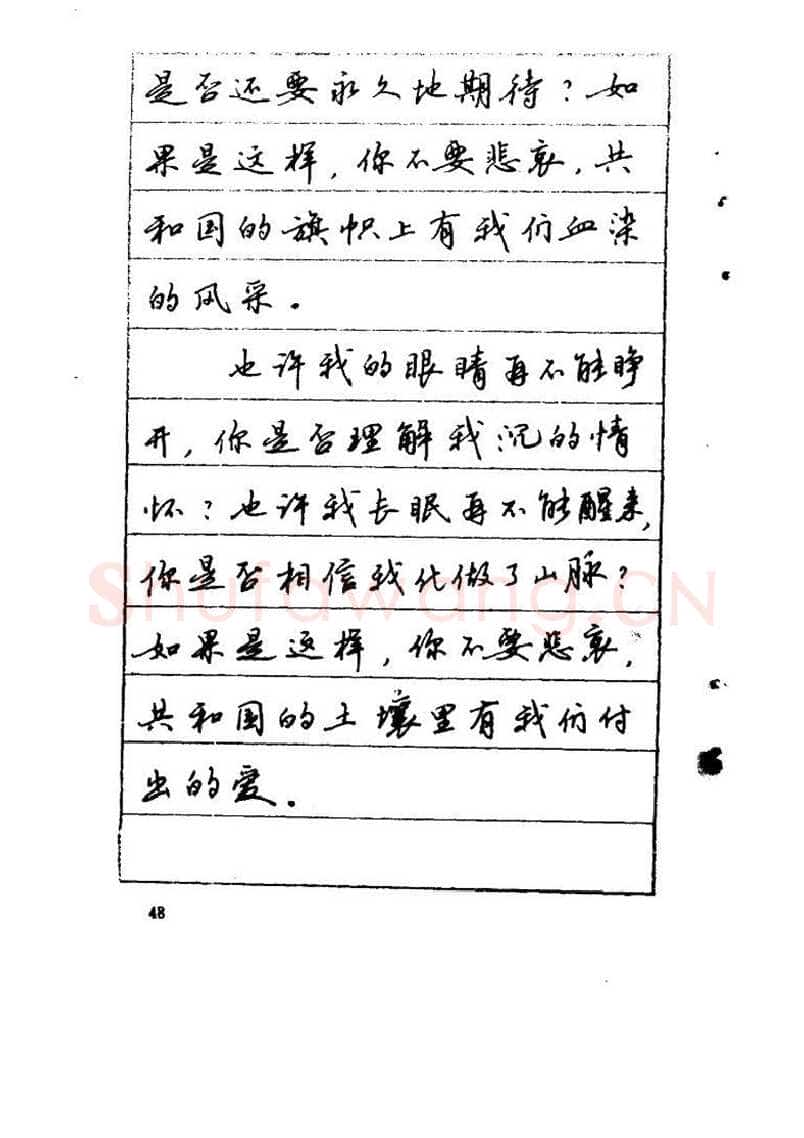 是否还要永久地期待?如
果是这样,你不要悲哀,共
和国的旗帜上有我们血染
的风采。
也许我的眼睛再不能睁
开,你是否理解我沉的情
怀?也许我长眠再不能醒来,
你是否相信我化做了山脉?
如果是这样,你不要悲哀,
共和国的土壤里有我们付
出的爱。
48
Shufawang.CN